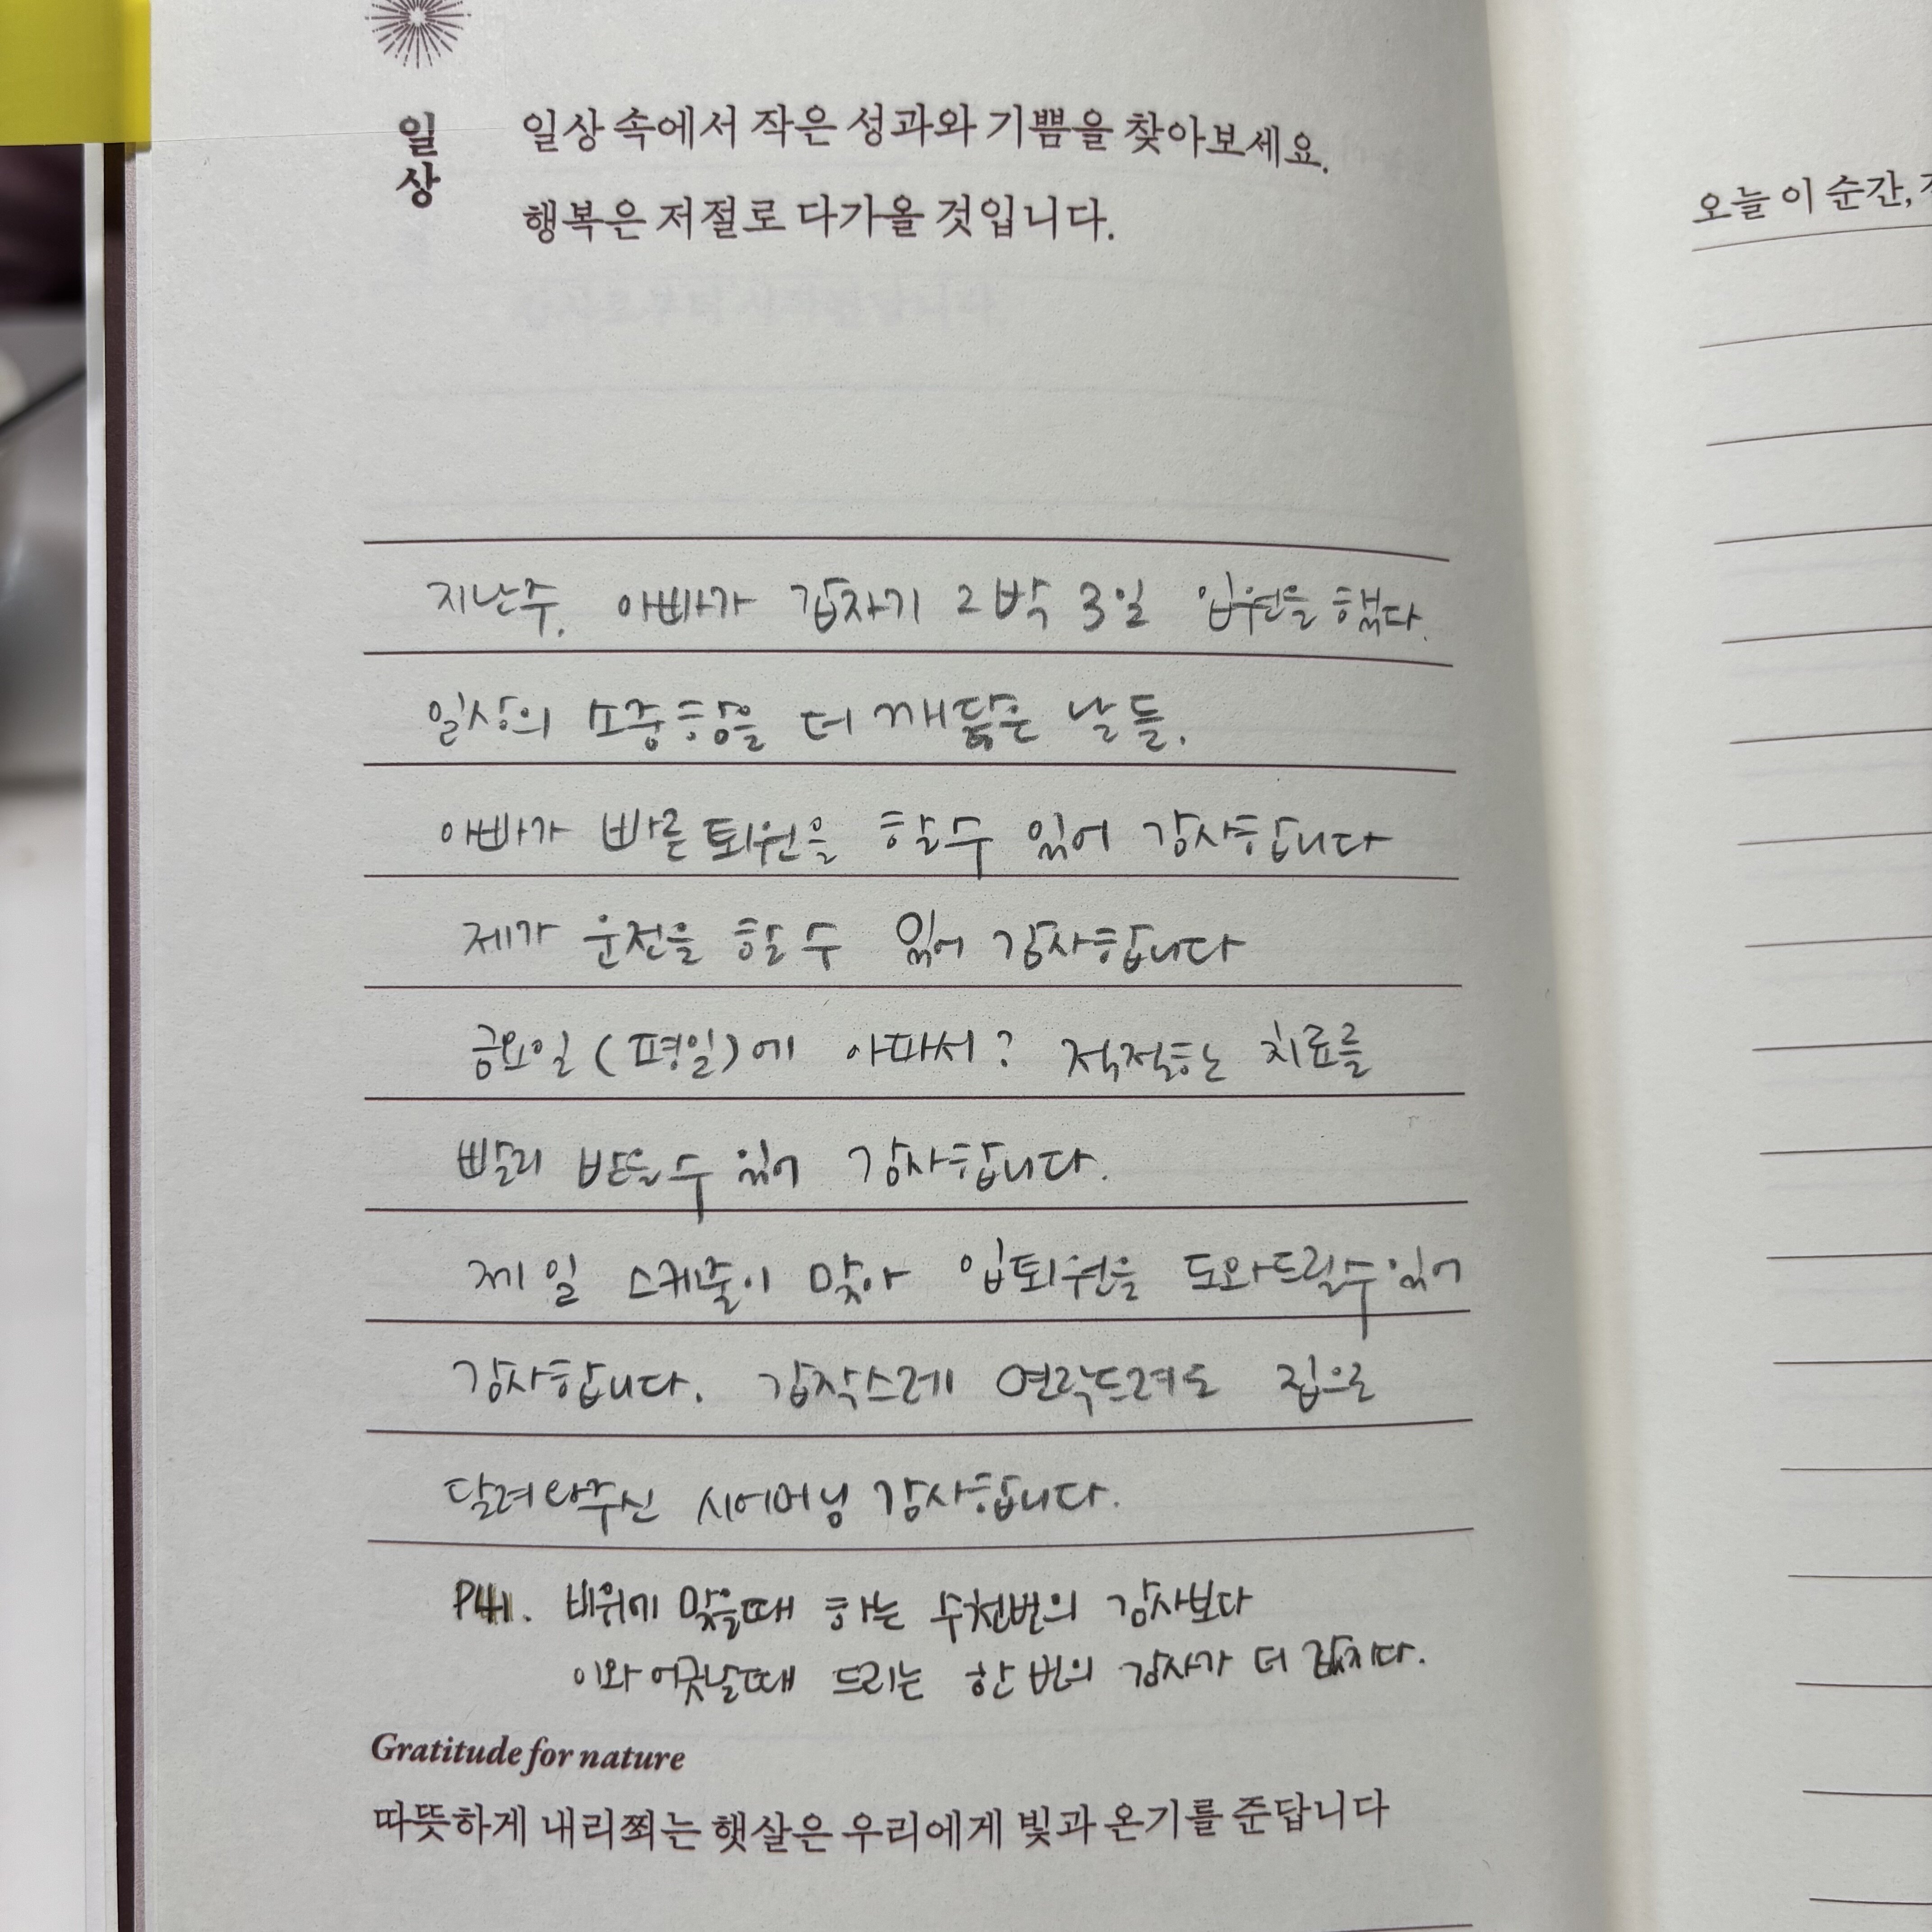 일상
일상 속에서 작은 성과와 기쁨을 찾아보세요.
행복은 저절로 다가올 것입니다.
지난주. 아빠가 갑자기 2박 3일 입원을 했다.
일상의 소중함을 더 깨닫은 날들.
아빠가 빠른 퇴원을 할수 있어 감사합니다
제가 운전을 할 수 있어 감사합니다
금요일(평일)에 아파서? 적절한 치료를
빨리 받을수 있어 감사합니다.
제 일 스케줄이 맞아 입퇴원을 도와드릴수있어
감사합니다. 갑작스레 연락드려도 집으로
달려와주신 시어머님 감사합니다.
P41. 비위에 맞을때 하는 수천번의 감사보다
이와 어긋날때 드리는 한 번의 감사가 더 값지다.
Gratitude for nature
따뜻하게 내리쬐는 햇살은 우리에게 빛과 온기를 준답니다
오늘 이 순간,